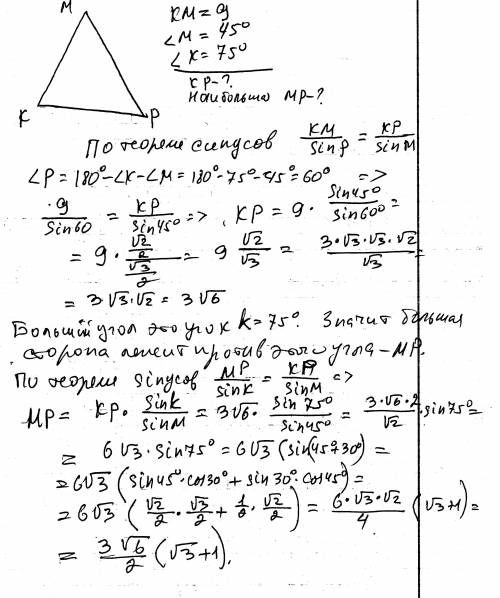 M
K
P
KM = 9
∠M = 45°
∠K = 75°
KP-?
Наибольша MP-?
По теореме синусов KM/sin P = KP/sin M
∠P = 180° - ∠K - ∠M = 180° - 75° - 45° = 60° =>
9/sin60 = KP/sin45° => KP = 9 · sin45°/sin60° =
= 9 · (√2/2)/(√3/2) = 9 √2/√3 = 3·√3·√3·√2/√3 =
= 3√3·√2 = 3√6
Больший угол это угол K = 75°. Значит большая
сторона лежит против этого угла - MP.
По теореме sinусов MP/sinK = KP/sinM =>
MP = KP · sinK/sinM = 3√6 · sin 75°/sin45° = 3·√6·2/√2 · sin75° =
= 6√3 · sin75° = 6√3 (sin(45°+30°) =
= 6√3 (sin45°·cos30° + sin30°·cos45°) =
= 6√3 (√2/2 · √3/2 + 1/2 · √2/2) = 6·√3·√2/4 (√3+1) =
= 3√6/2 (√3+1).